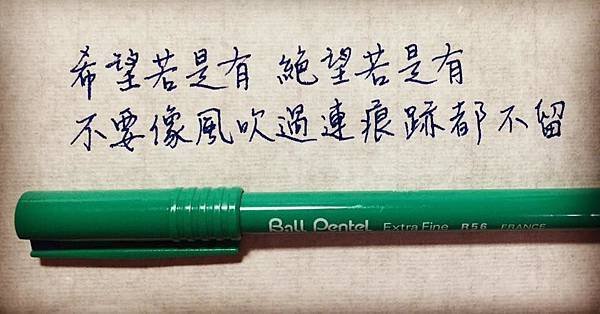 希望若是有 絕望若是有
不要像風吹過連痕跡都不留
Ball Pentel Extra Fine R56 FRANCE